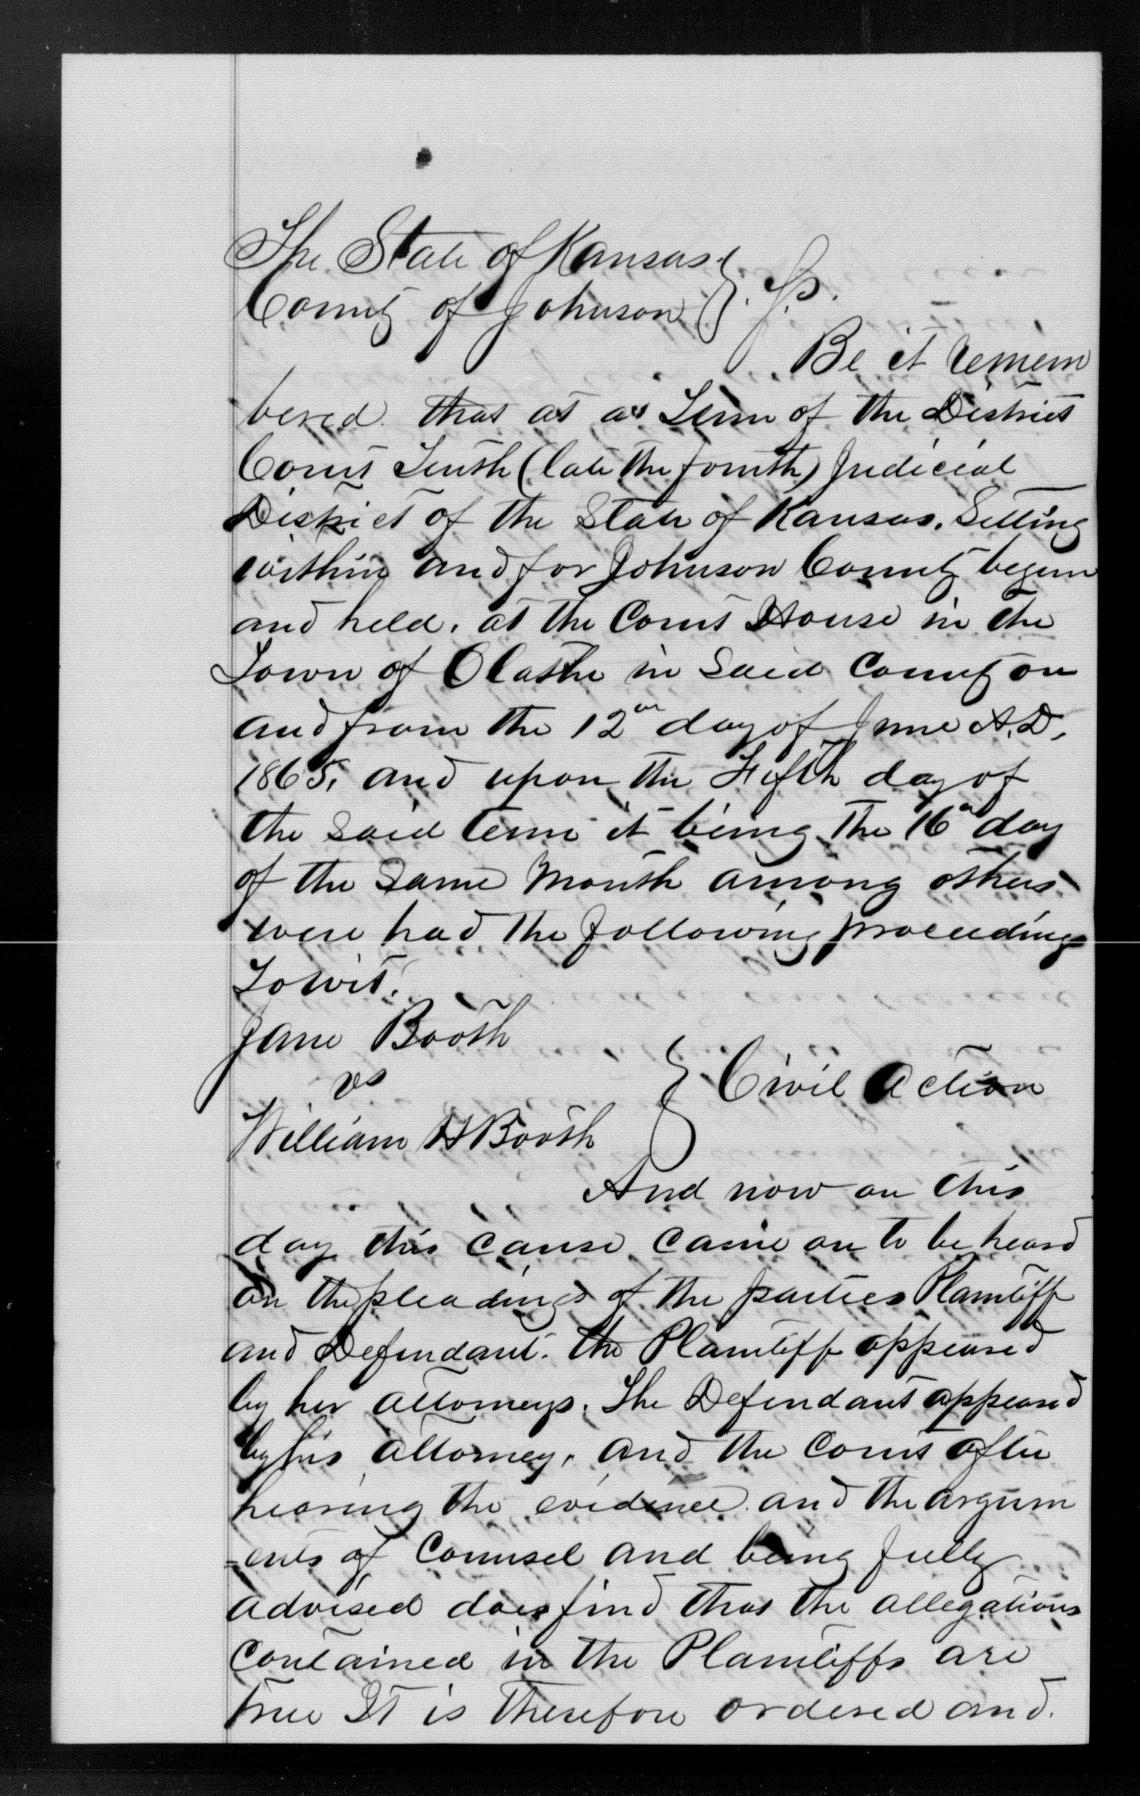 The State of Kansas }
County of Johnson } S.S.
Be it remem
bered that at a Term of the District
Court Tenth (late the fourth) Judicial
District of the State of Kansas. Sitting
within and for Johnson County begun
and held, at the Court House in the
Town of Olathe in Said County on
and from the 12th day of June A.D.
1865, and upon the Fifth day of
the said term it being the 16th day
of the Same Month among others
were had the following proceedings
Towit.
Jane Booth
vs } Civil Action
William H Booth
And now on this
day this cause came on to be heard
on the pleadings of the parties Plaintiff
and Defendant. the Plaintiff appeared
by her attorneys. The Defendant appeared
by his attorney, and the Court after
hearing the evidence and the argum
=ents of Counsel and being fully
advised does find that the allegations
contained in the Plaintiffs are
true It is therefore ordered and.